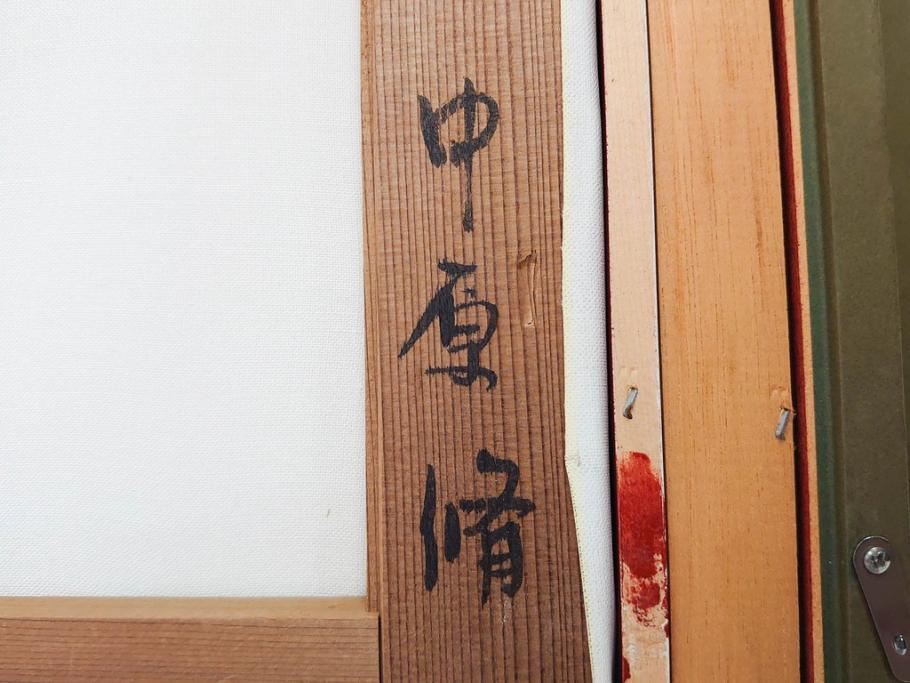 中原脩